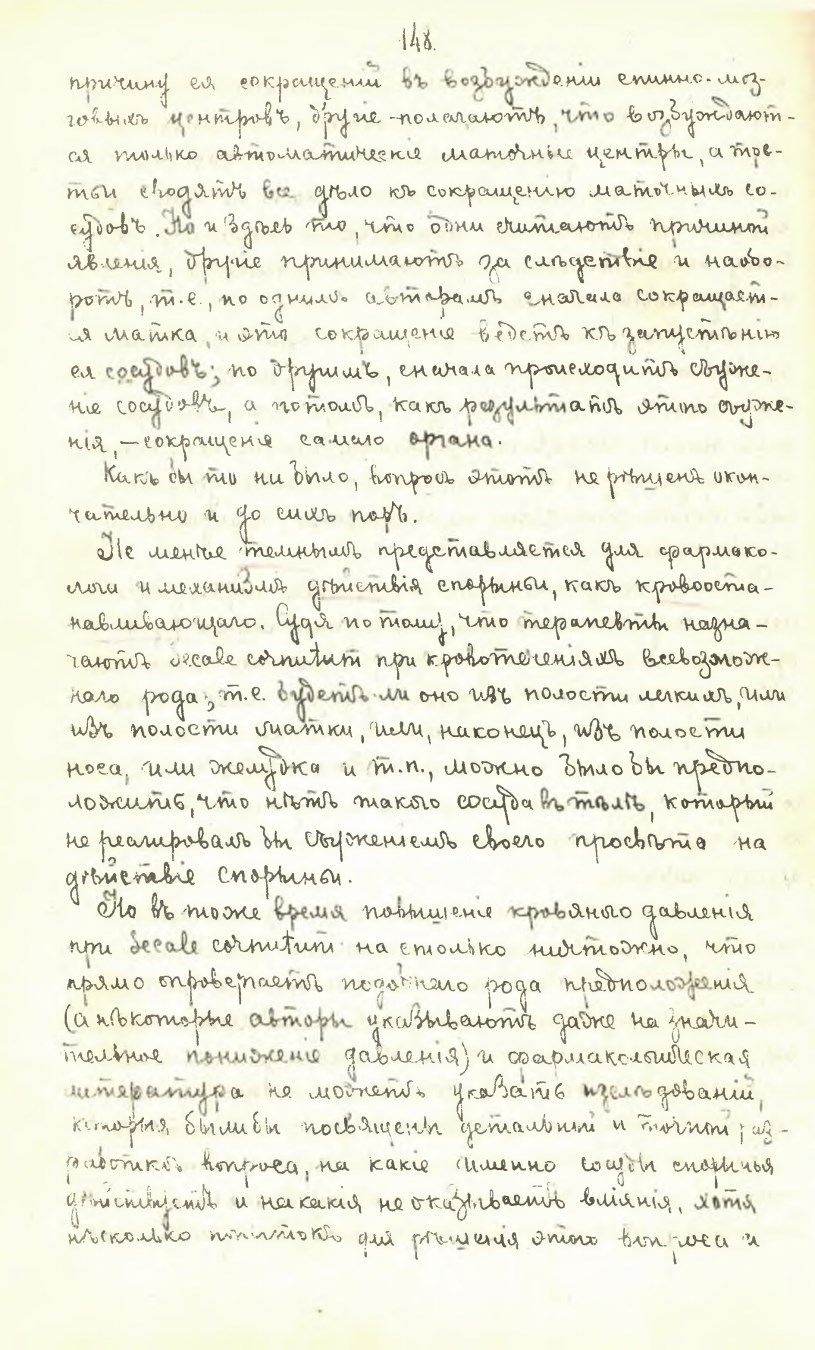 148.
причину ея сокращеній въ возбужденіи спинно-моз-
говыхъ центровъ, другіе полагаютъ, что возбуждают-
ся только автоматическіе маточные центры, а тре-
тьи сводятъ все дѣло къ сокращенію маточныхъ со-
судовъ. Но и здѣсь то, что одни считаютъ причиной
явленія, другіе принимаютъ за слѣдствіе и наобо-
ротъ, т.е., по однимъ авторамъ сначала сокращает-
ся матка, и это сокращеніе ведетъ къ запустѣнію
ея сосудовъ; по другимъ, сначала происходитъ съуже-
ніе сосудовъ, а потомъ, какъ результатъ этого съуже-
нія, — сокращеніе самаго органа.
Какъ бы то ни было, вопросъ этотъ не рѣшенъ окон-
чательно и до сихъ поръ.
Не менѣе темнымъ представляется для фармако-
лога и механизмъ дѣйствія спорыньи, какъ кровооста-
навливающаго. Судя по тому, что терапевты назна-
чаютъ Secale cornutum при кровотеченіяхъ всевозмож-
наго рода, т.е. будетъ ли оно изъ полости легкихъ, или
изъ полости матки, или, наконецъ, изъ полости
носа, или желудка и т.п., можно было бы предпо-
ложить, что нѣтъ такого сосуда въ тѣлѣ, который
не реагировалъ бы съуженіемъ своего просвѣта на
дѣйствіе спорыньи.
Но въ тоже время повышеніе кровяного давленія
при Secale cornutum на столько ничтожно, что
прямо опровергаетъ подобнаго рода предположенія
(а нѣкоторые авторы указываютъ даже на значи-
тельное пониженіе давленія) и фармакологическая
литература не можетъ указать изслѣдованій,
которыя были бы посвящены детальной и точной раз-
работкѣ вопроса, на какіе именно сосуды спорынья
дѣйствуетъ и на какія не оказываетъ вліянія, хотя
нѣсколько попытокъ для рѣшенія этого вопроса и